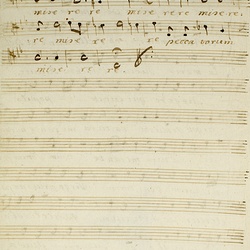 mise re re mise rere misere:
re mise re re peccatorum
mise re re.